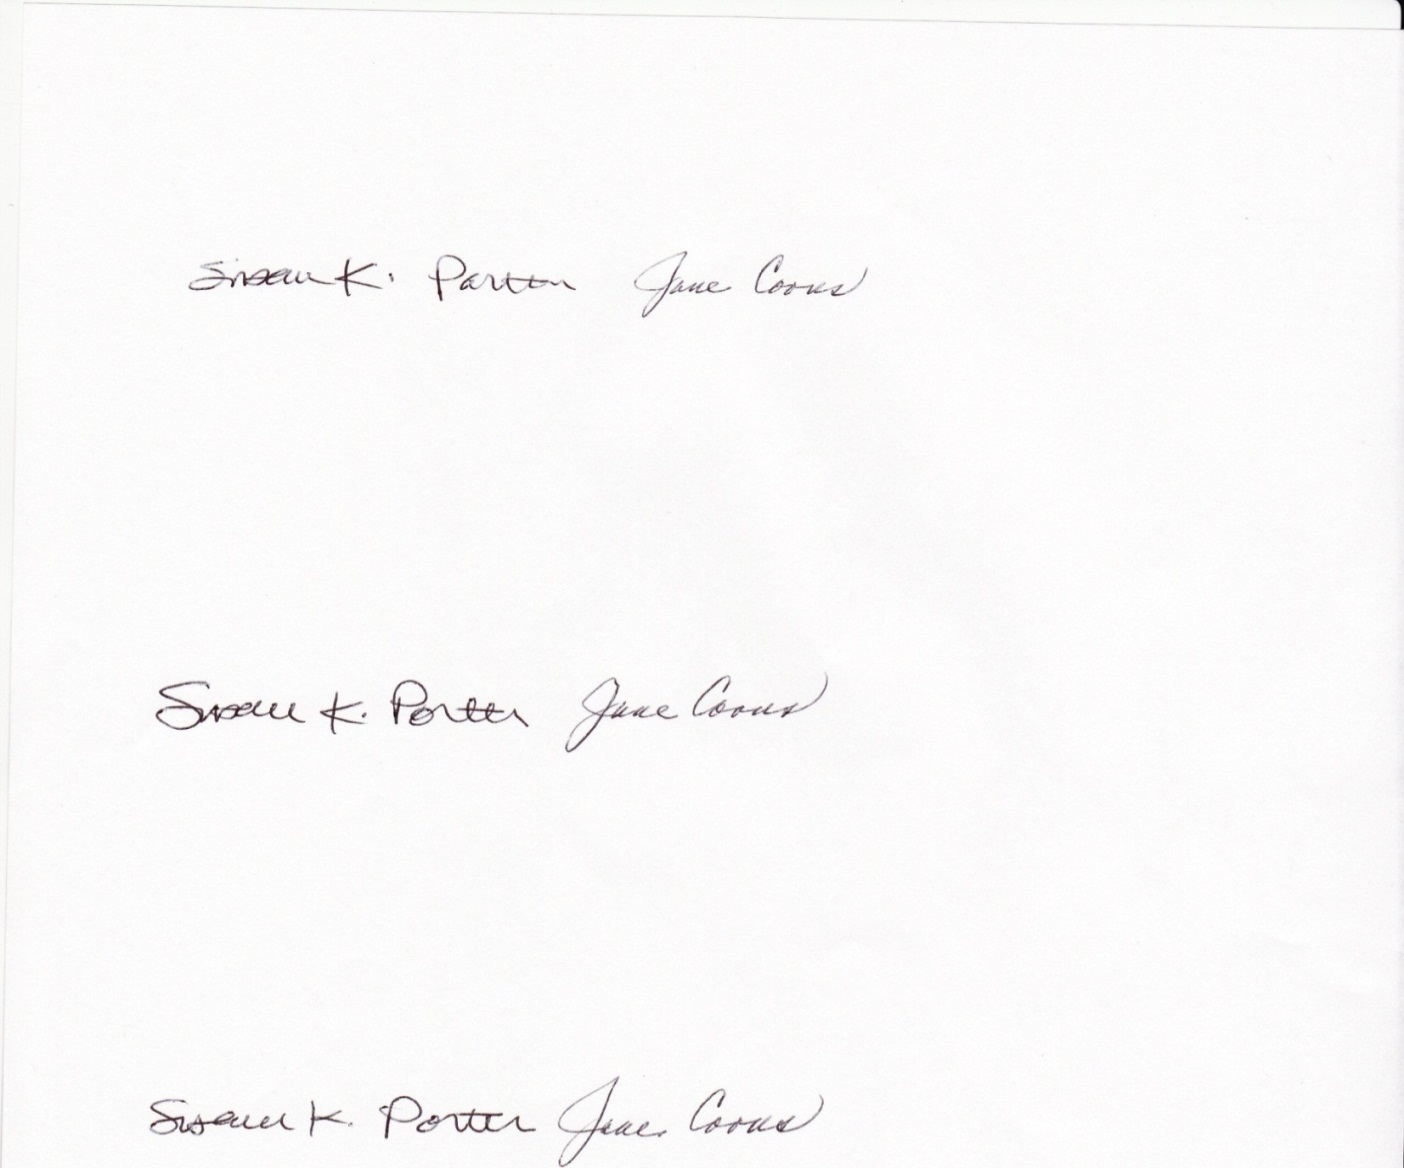 Susan K. Porter Jane Coons
Susan K. Porter Jane Coons
Susan K. Porter Jane Coons